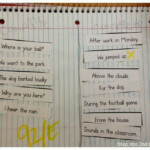 Where is your ball?
We went to the park.
The dog barked loudly
Why are you here?
I hear the rain.
92/E
After work on Monday
We jumped up
Above the clouds
For the dog
During the football game
From the house
Sounds in the classroom.